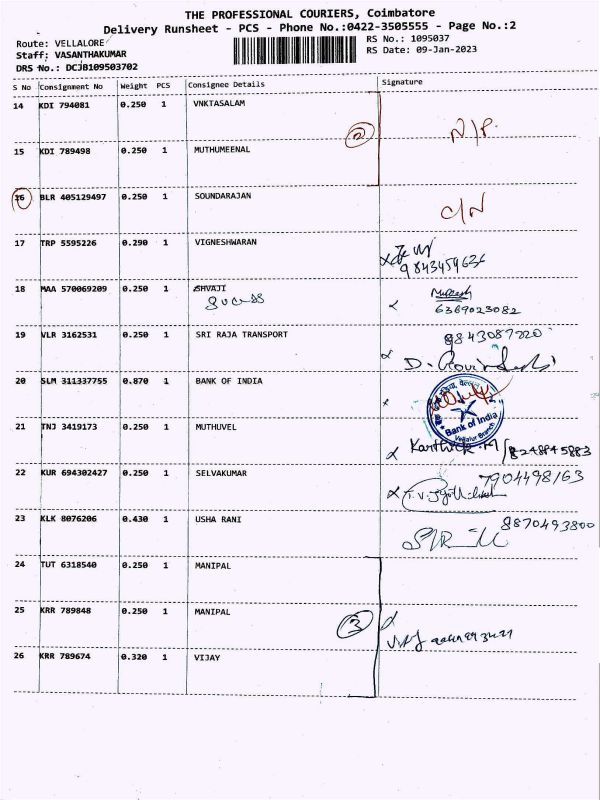 THE PROFESSIONAL COURIERS, Coimbatore
Delivery Runsheet - PCS - Phone No.:0422-3505555 - Page No.:2
Route: VELLALORE
RS No.: 1095037
Staff: VASANTHAKUMAR
RS Date: 09-Jan-2023
DRS No.: DCJB109503702
S No Consignment No Weight PCS Consignee Details Signature
14 KDI 794081 0.250 1 VNKTASALAM
2 N/P
15 KDI 789498 0.250 1 MUTHUMEENAL
16 BLR 405129497 0.250 1 SOUNDARAJAN
C/N
17 TRP 5595226 0.290 1 VIGNESHWARAN
18 MAA 570069209 0.250 1 SHVAJI
6369023082
19 VLR 3162531 0.250 1 SRI RAJA TRANSPORT
9843087220
20 SLM 311337755 0.870 1 BANK OF INDIA
Bank of India
Vellalur Branch
21 TNJ 3419173 0.250 1 MUTHUVEL
Karthick.M/8248845883
22 KUR 694302427 0.250 1 SELVAKUMAR
7904498163
23 KLK 8076206 0.430 1 USHA RANI
8870493800
24 TUT 6318540 0.250 1 MANIPAL
25 KRR 789848 0.250 1 MANIPAL
3
26 KRR 789674 0.320 1 VIJAY